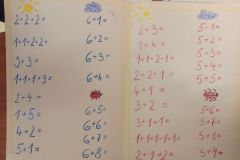 2+2+2=
1+1+2+2=
3+3=
1+1+1+3=
2+4=
1+5=
4+2=
5+1=
6+1=
6+2=
6+3=
6+4=
6+5=
6+6=
6+7=
6+8=
2+3=
1+4=
2+2+1=
4+1=
3+2=
1+1+1+1+1=
2+1+2=
5+1=
5+2=
5+3=
5+4=
5+5=
5+6=
5+7=
5+8=
5+9=